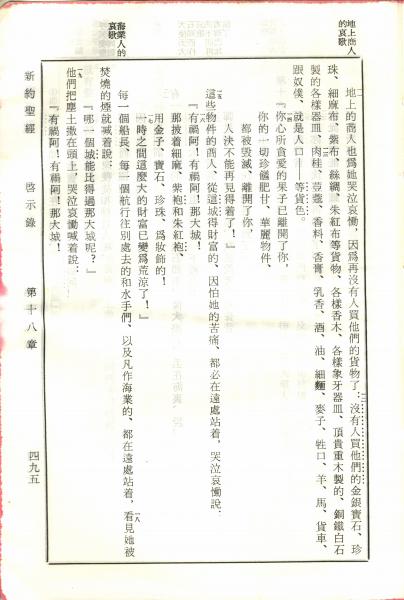 地上商人
的哀歌
海業人的
哀歌
十一地上的商人也爲她哭泣哀慟，因爲再沒有人買他們的貨物了；十二沒有人買他們的金銀寶石、珍
珠、細麻布、紫布、絲綢、朱紅布等貨物、各樣香木、各樣象牙器皿、頂貴重木製的、銅鐵白石
製的各樣器皿、十三肉桂、荳蔻、香料、香膏、乳香、酒、油、細麵、麥子、牲口、羊、馬、貨車、
跟奴僕、就是人口——等貨色。
十四『你心所貪愛的果子已離開了你，
你的一切珍饈肥甘、華麗物件、
都被毀滅、離開了你，
人決不能再見得着了！』
十五這些物件的商人、從這城得財富的、因怕她的苦痛、都必在遠處站着，哭泣哀慟說：
十六『有禍阿！有禍阿！那大城！
那披着細麻、紫袍和朱紅袍、
用金子、寶石、珍珠、爲妝飾的！
十七一時之間這麼大的財富已變爲荒涼了！』
每一個船長、每一個航行往別處去的和水手們、以及凡作海業的、都在遠處站着，十八看見她被
焚燒的煙就喊着說：
『哪一個城能比得過那大城呢？』
十九他們把塵土撒在頭上，哭泣哀慟喊着說：
『有禍阿！有禍阿！那大城！
新約聖經　啓示錄　第十八章　四九五